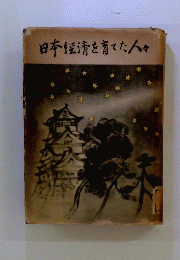 日本経済を育てた人々